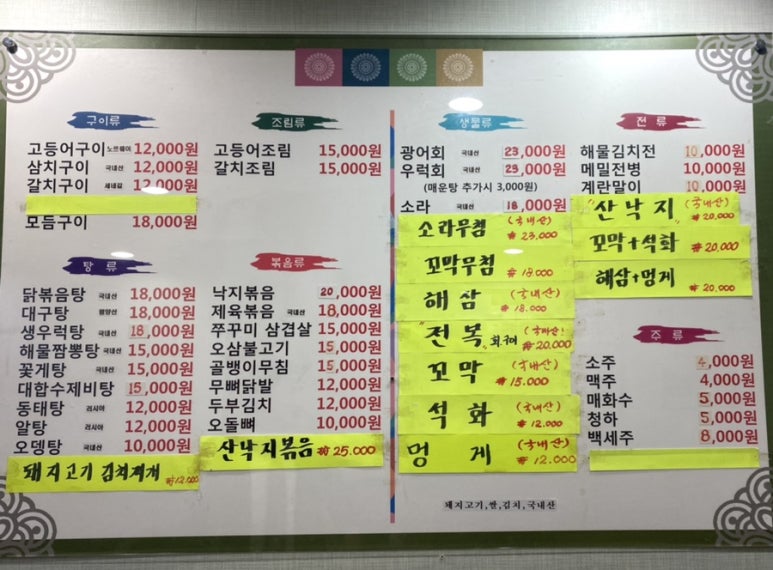 구이류
고등어구이 노르웨이 12,000원
삼치구이 국내산 12,000원
갈치구이 세네갈 12,000원
모듬구이 18,000원
조림류
고등어조림 15,000원
갈치조림 15,000원
탕류
닭볶음탕 국내산 18,000원
대구탕 18,000원
생우럭탕 국내산 18,000원
해물짬뽕탕 국내산 15,000원
꽃게탕 국내산 15,000원
대합수제비탕 15,000원
동태탕 러시아 12,000원
알탕 러시아 12,000원
오뎅탕 국내산 10,000원
돼지고기 김치찌개 ₩12,000
볶음류
낙지볶음 20,000원
제육볶음 국내산 18,000원
쭈꾸미 삼겹살 15,000원
오삼불고기 15,000원
골뱅이무침 15,000원
무뼈닭발 12,000원
두부김치 12,000원
오돌뼈 10,000원
산낙지볶음 ₩25.000
생물류
광어회 국내산 23,000원
우럭회 국내산 23,000원
(매운탕 추가시 3,000원)
소라 국내산 18,000원
소라무침 (국내산) ₩23,000
꼬막무침 ₩18.000
해삼 (국내산) ₩18.000
"전복" 회구이 (국내산) ₩20,000
꼬막 (국내산) ₩15.000
석화 (국내산) ₩12.000
멍게 (국내산) ₩12.000
전류
해물김치전 10,000원
메밀전병 10,000원
계란말이 10,000원
"산낙지" (국내산) ₩20,000
꼬막+석화 ₩20,000
해삼+멍게 ₩20.000
주류
소주 4,000원
맥주 4,000원
매화수 5,000원
청하 5,000원
백세주 8,000원
돼지고기,쌀,김치,국내산